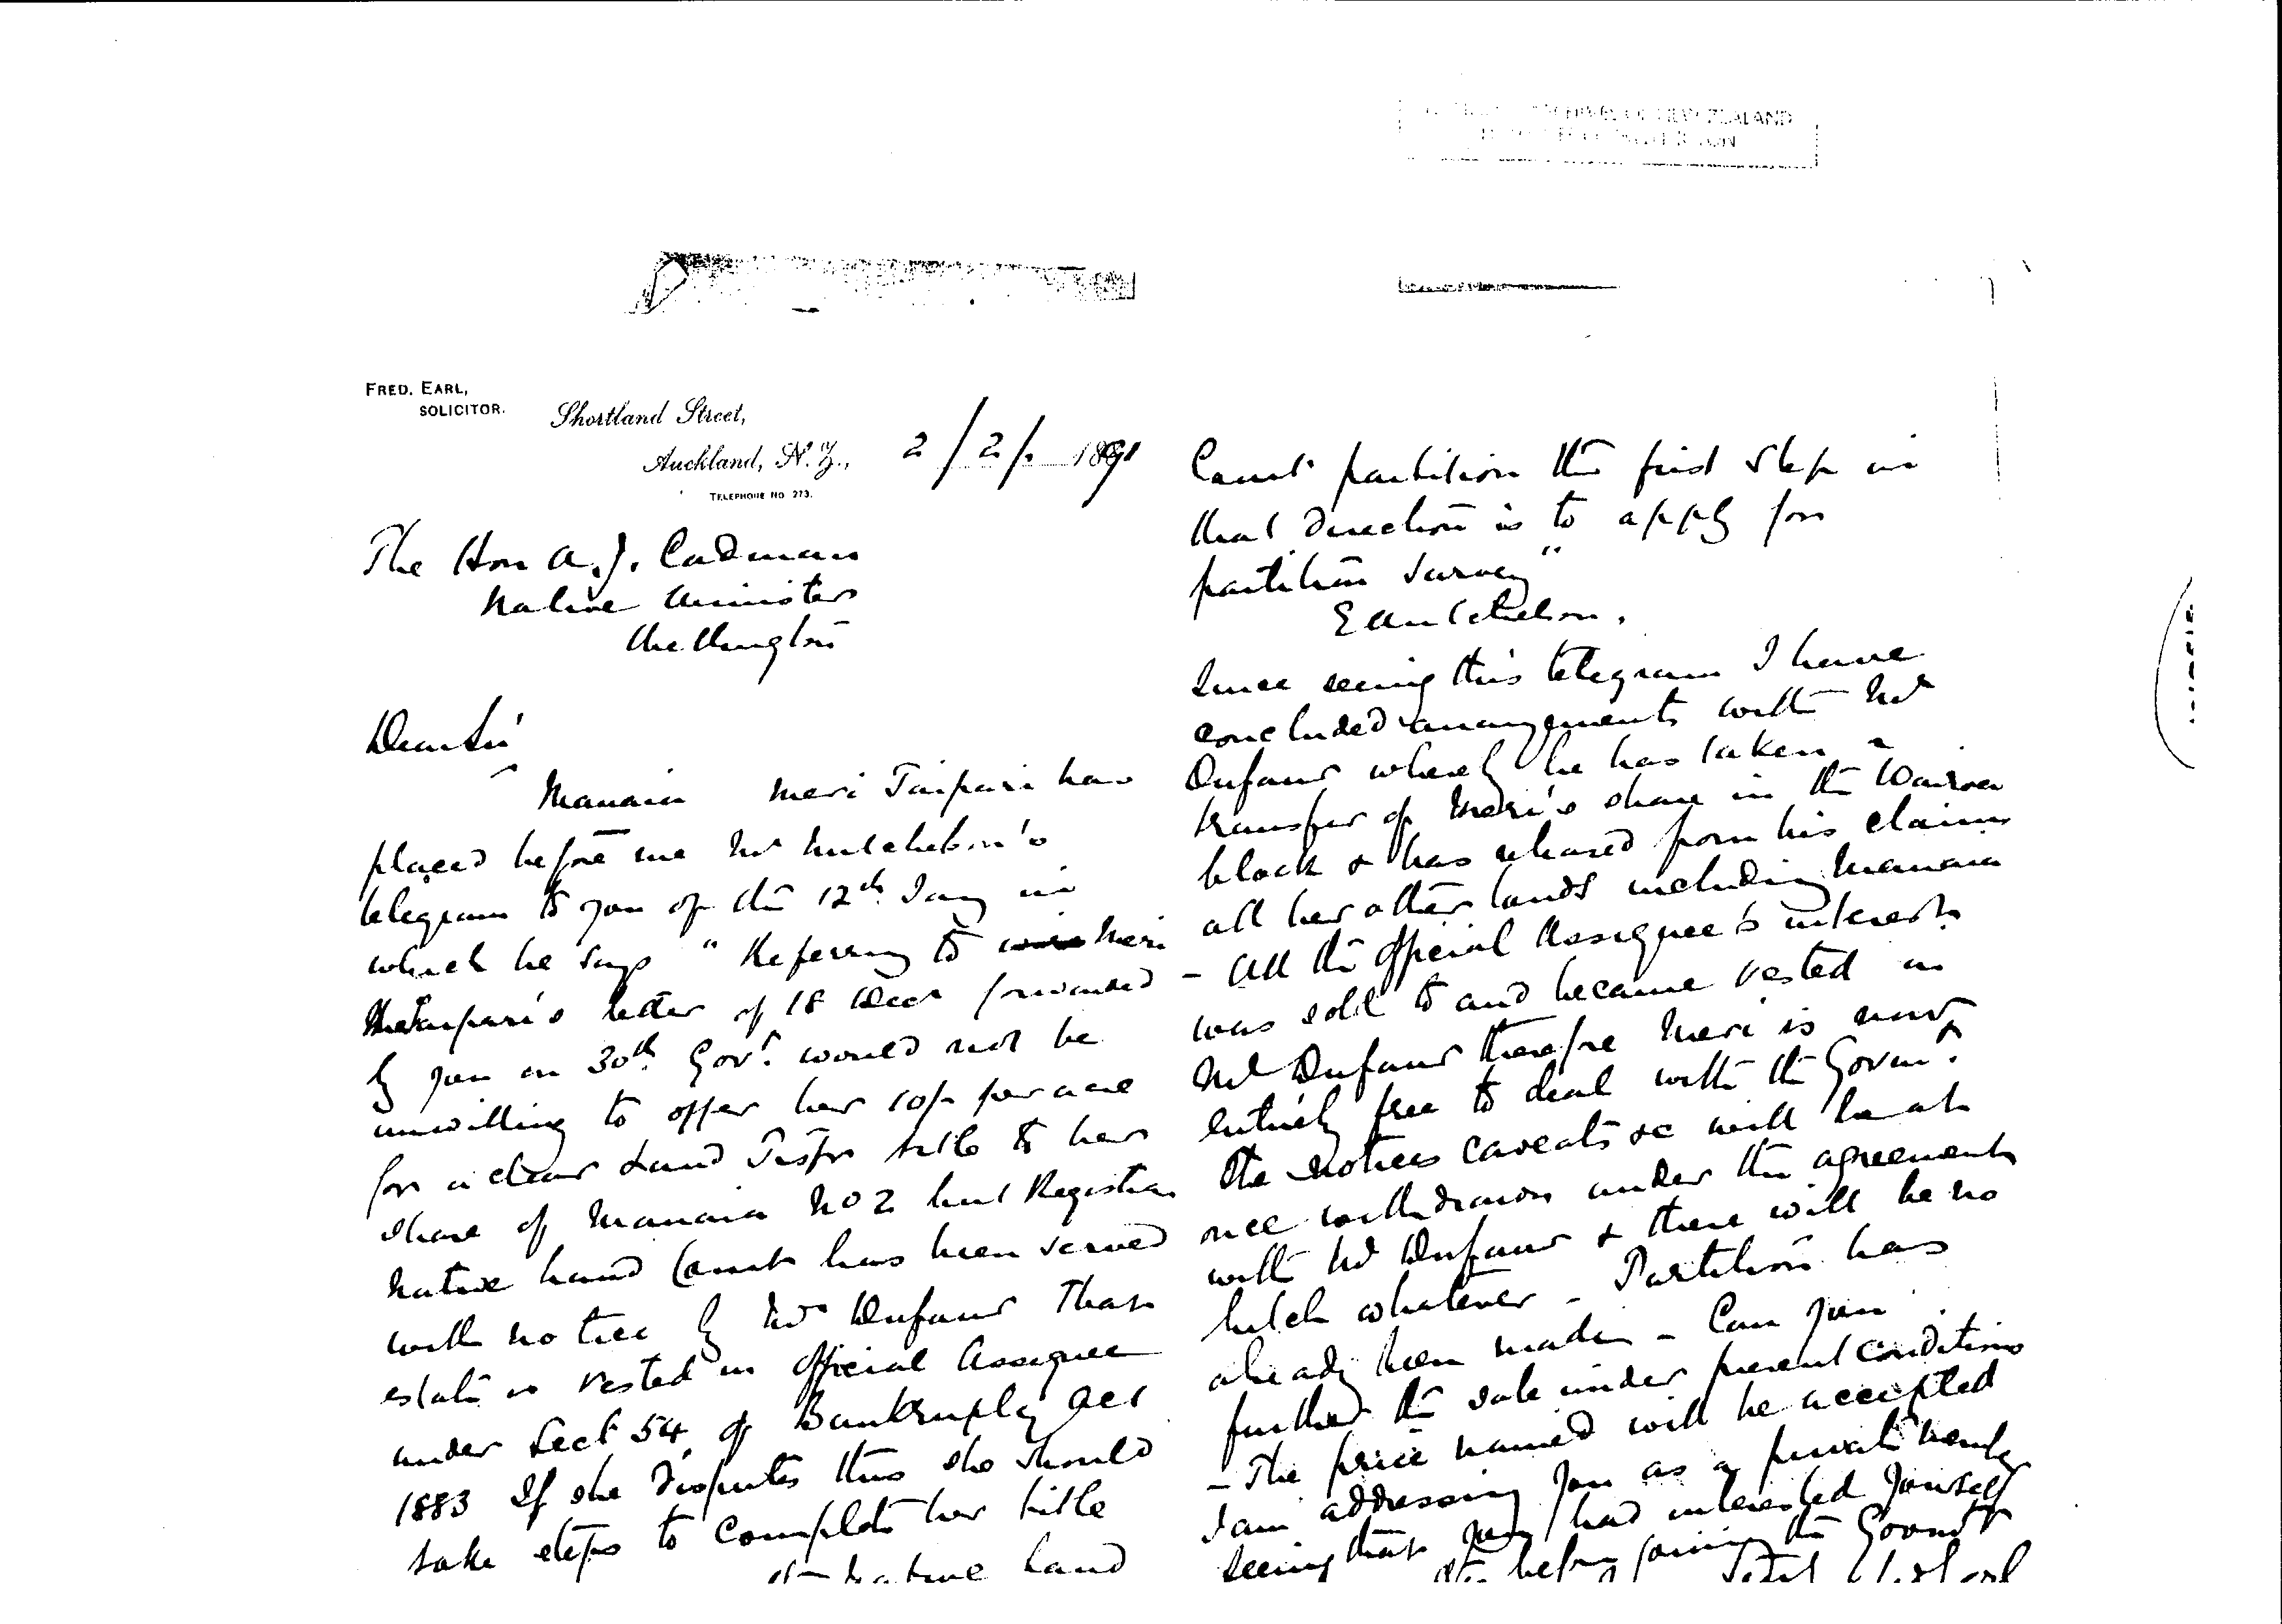 ARCHIVES OF NEW ZEALAND
FRED. EARL,
SOLICITOR.
Shortland Street,
Auckland, N.Z., 2/2/. 1891
TELEPHONE NO 273.
The Hon A. J. Cadman
Native Minister
Wellington
Dear Sir
Manaia Meri Taipari has
placed before me Mr Mitchelson's
telegram to you of the 12th Jany in
which he says "Referring to Meri
Taipari's letter of 18 Decr forwarded
by you on 30th Govt. would not be
unwilling to offer her 10/- per acre
for a clear Land Tsfr title to her
share of Manaia No 2 but Registrar
Native Land Court has been served
with notice by Mr Dufaur that
estate is vested in Official Assignee
under Sect 54 of Bankruptcy Act
1883 If she disputes this she should
take steps to complete her title
Native Land
Court partition the first step in
that direction is to apply for
partition survey"
E Mitchelson.
Since seeing this telegram I have
concluded arrangements with Mr
Dufaur whereby he has taken a
transfer of Meri's share in the Wairoa
block & has released from his claims
all her other lands including Manaia
- All the Official Assignee's interest
was sold to and became vested in
Mr Dufaur therefore Meri is now
entirely free to deal with the Govmt.
The notices caveats &c will be at
once withdrawn under the agreement
with Mr Dufaur & there will be no
hitch whatever - Partition has
already been made - Can you
further the sale under present conditions
- The price named will be accepted
I am addressing you as a private member
seeing that you had interested yourself
before joining the Govmt